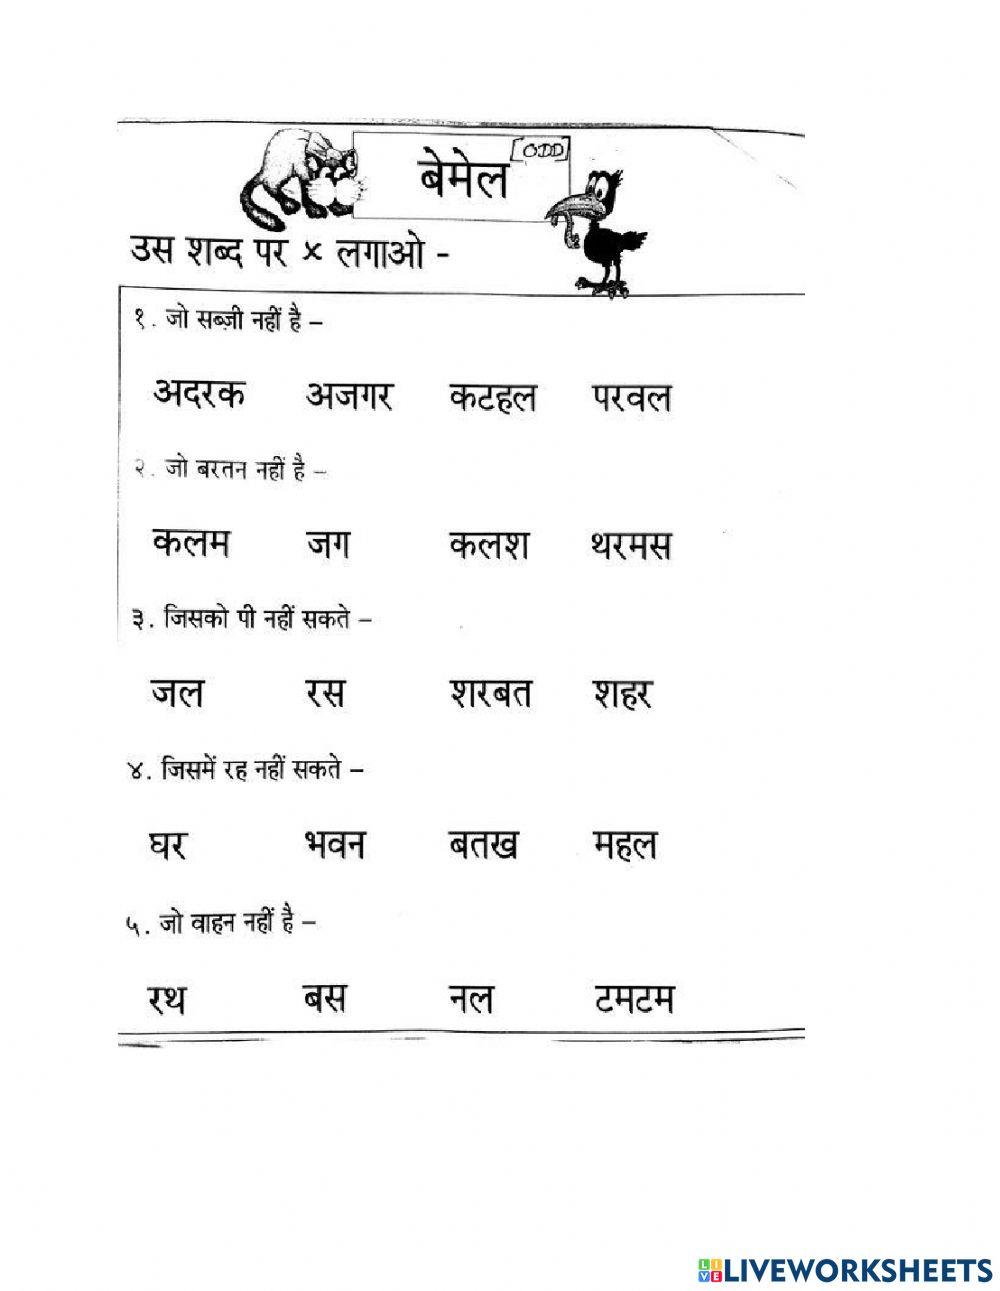 बेमेल [ODD]
उस शब्द पर × लगाओ -
१. जो सब्ज़ी नहीं है –
अदरक अजगर कटहल परवल
२. जो बरतन नहीं है –
कलम जग कलश थरमस
३. जिसको पी नहीं सकते –
जल रस शरबत शहर
४. जिसमें रह नहीं सकते –
घर भवन बतख महल
५. जो वाहन नहीं है –
रथ बस नल टमटम
LIVEWORKSHEETS